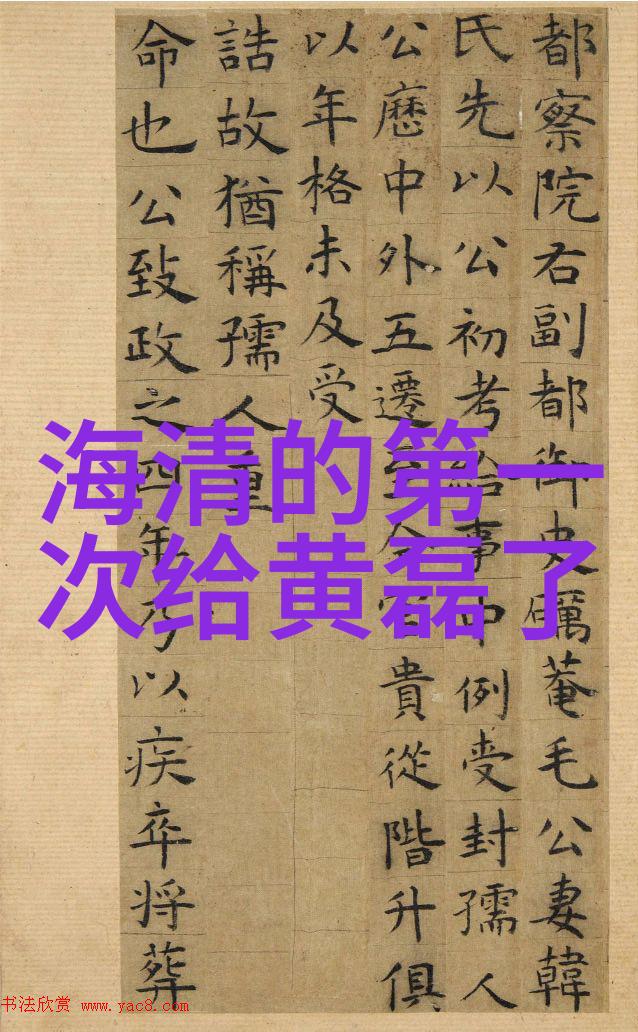 都察院右副都御史礪菴毛公妻韓
氏先以公初考給事中例受封孺人
公歷中外五遷至今官貴從階升俱
以年格未及受
誥故猶稱孺人重
命也公致政之四年乃以疾卒将葬
海清的第一
次给黄磊了
书法欣赏 www.yac8.com